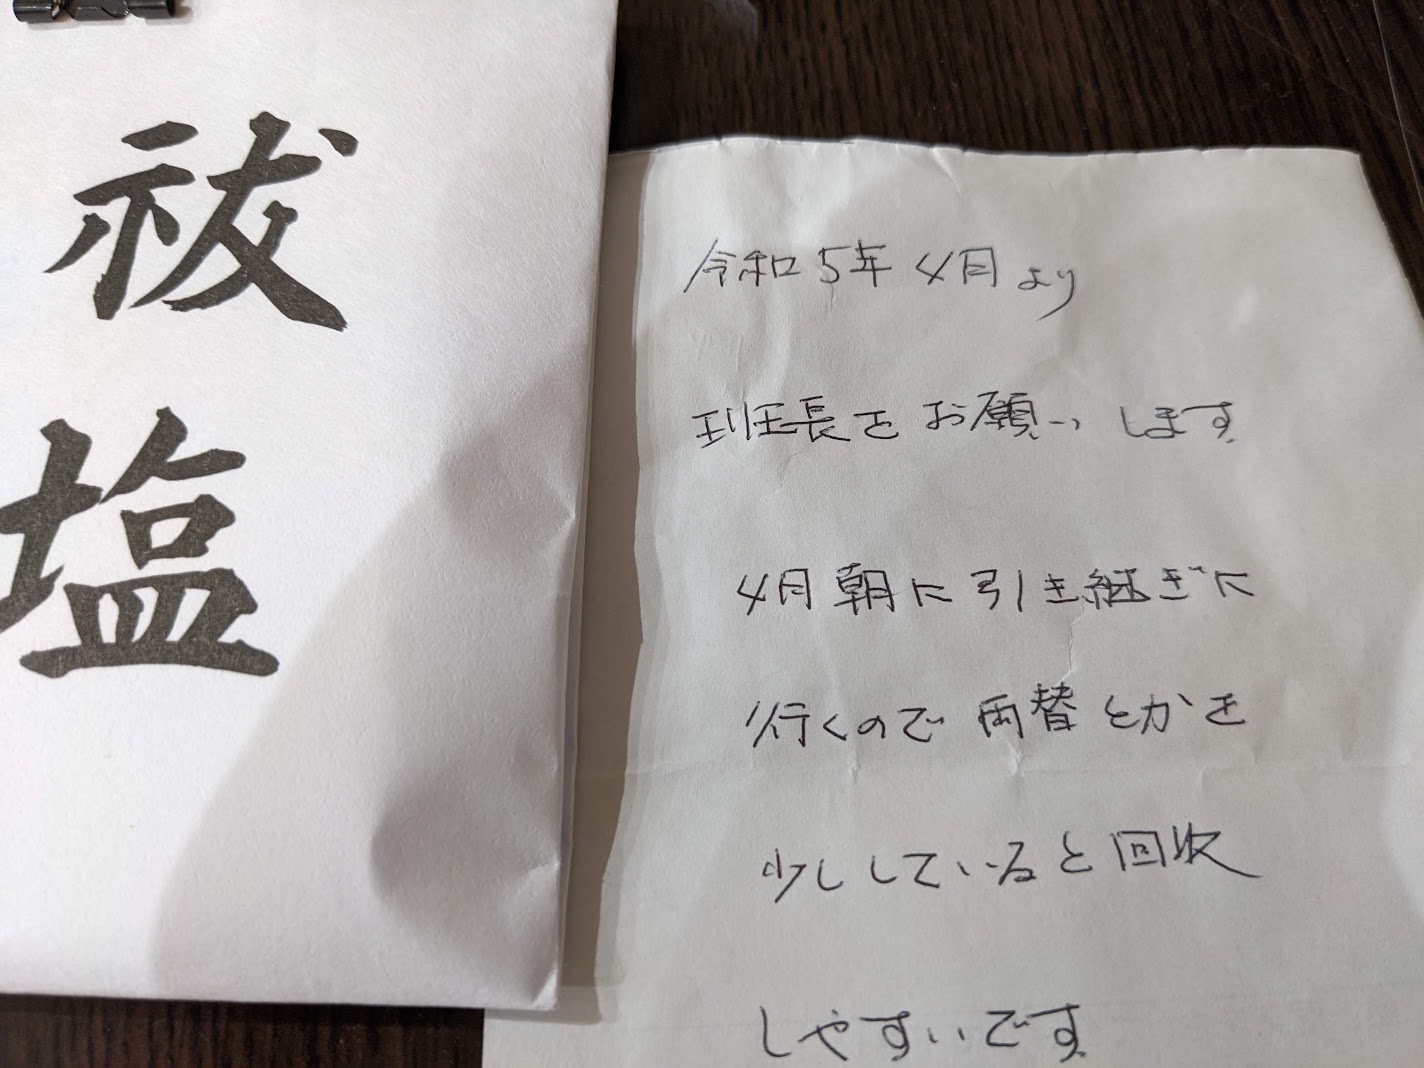 祓
塩
令和5年4月より
班長をお願いします
4月朝に引き継ぎに
行くので両替とかを
少ししていると回収
しやすいです